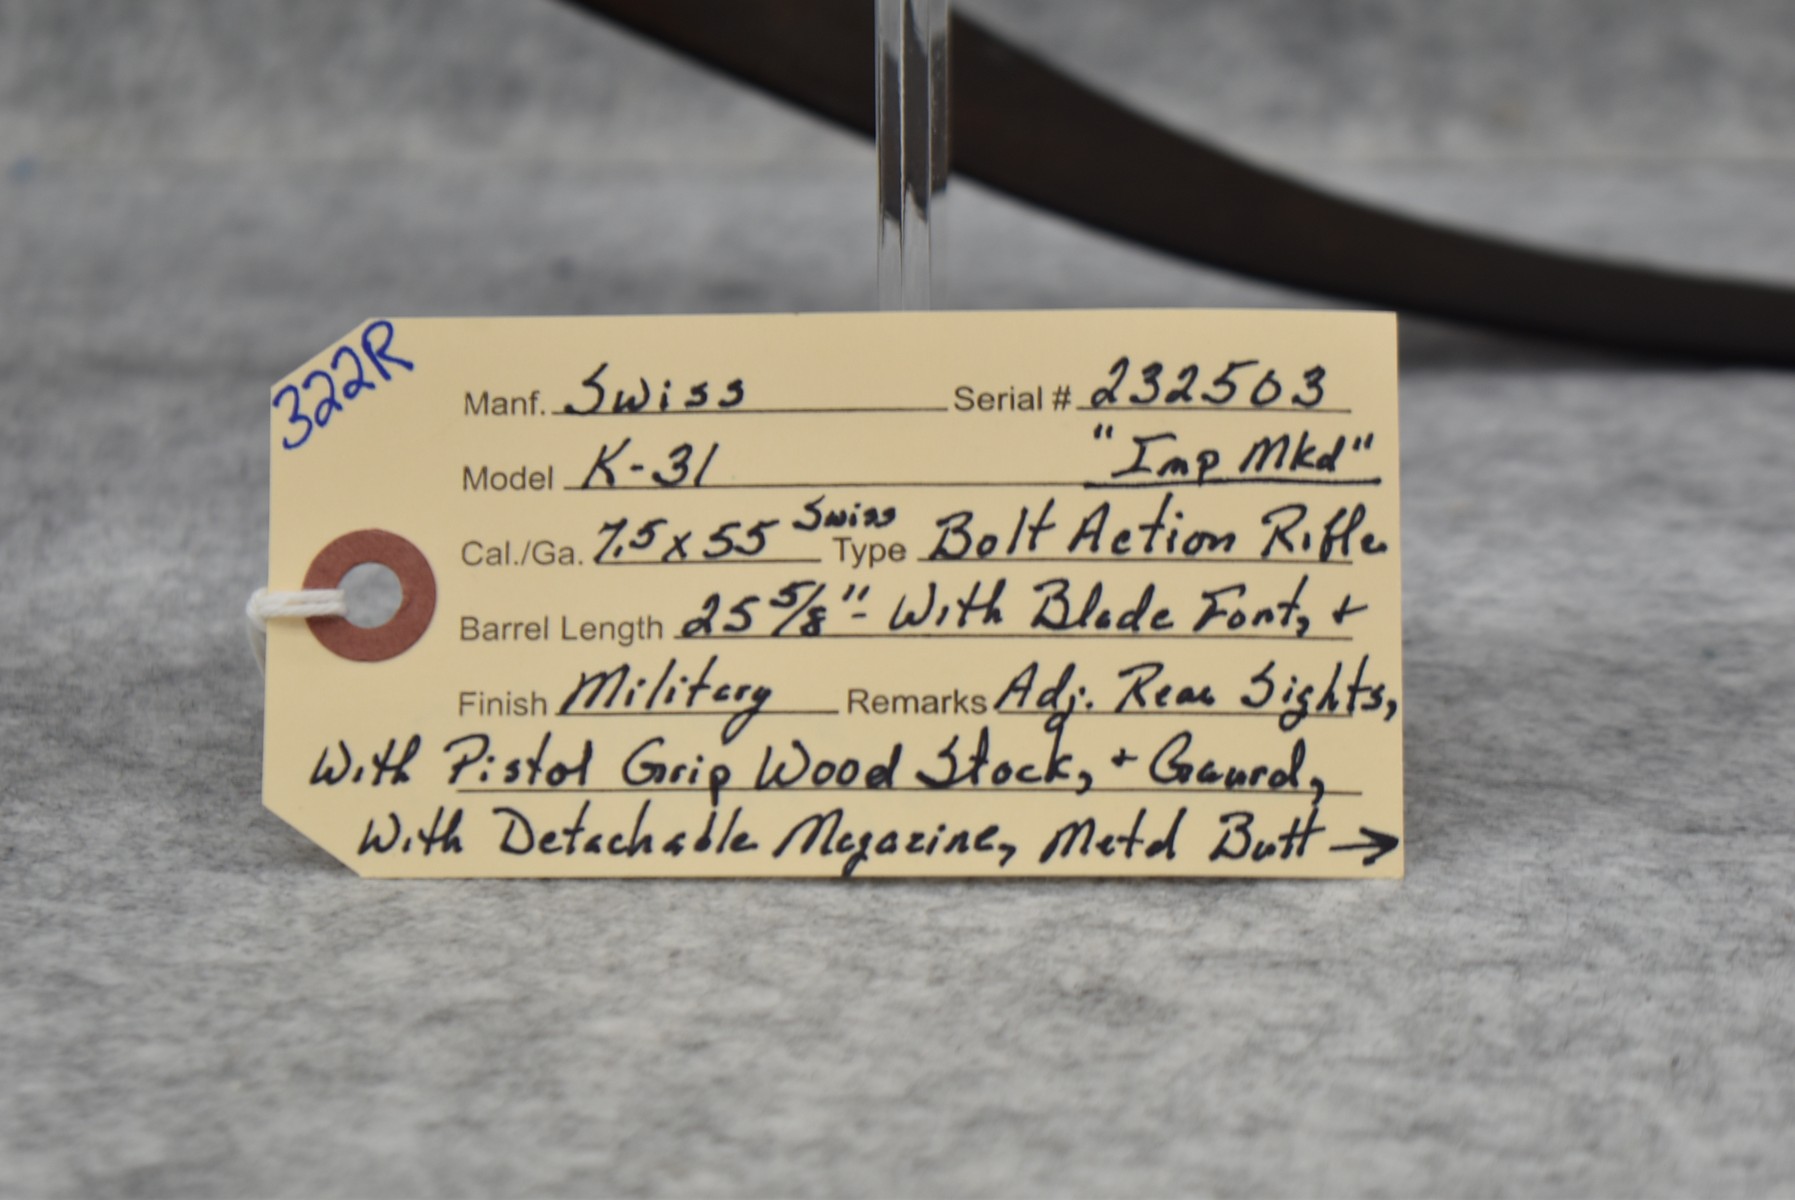 322R
Manf. Swiss Serial # 232503
Model K-31 "Imp Mkd"
Cal./Ga. 7.5 x 55 Swiss Type Bolt Action Rifle
Barrel Length 25 5/8" - With Blade Font, +
Finish Military Remarks Adj. Rear Sights,
With Pistol Grip Wood Stock, + Gaurd,
With Detachable Magazine, Metal Butt →